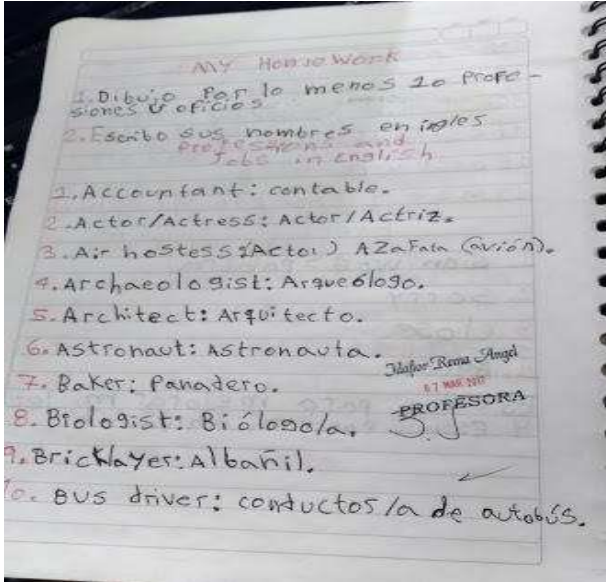 MY Homework
1. Dibujo Por lo menos 10 Profe-
siones y oficios
2. Escribo sus nombres en ingles
Professions and
Jobs in English
1. Accountant: contable.
2. Actor/Actress: Actor/Actriz.
3. Air hostess: (Actor) AZaFata (avión).
4. Archaeologist: Arqueólogo.
5. Architect: Arquitecto.
6. Astronaut: Astronauta.
7. Baker: Panadero.
8. Biologist: Biólogo/a.
9. Bricklayer: Albañil.
10. Bus driver: conductos/a de autobús.
Reina Angel
07 MAR 2017
PROFESORA